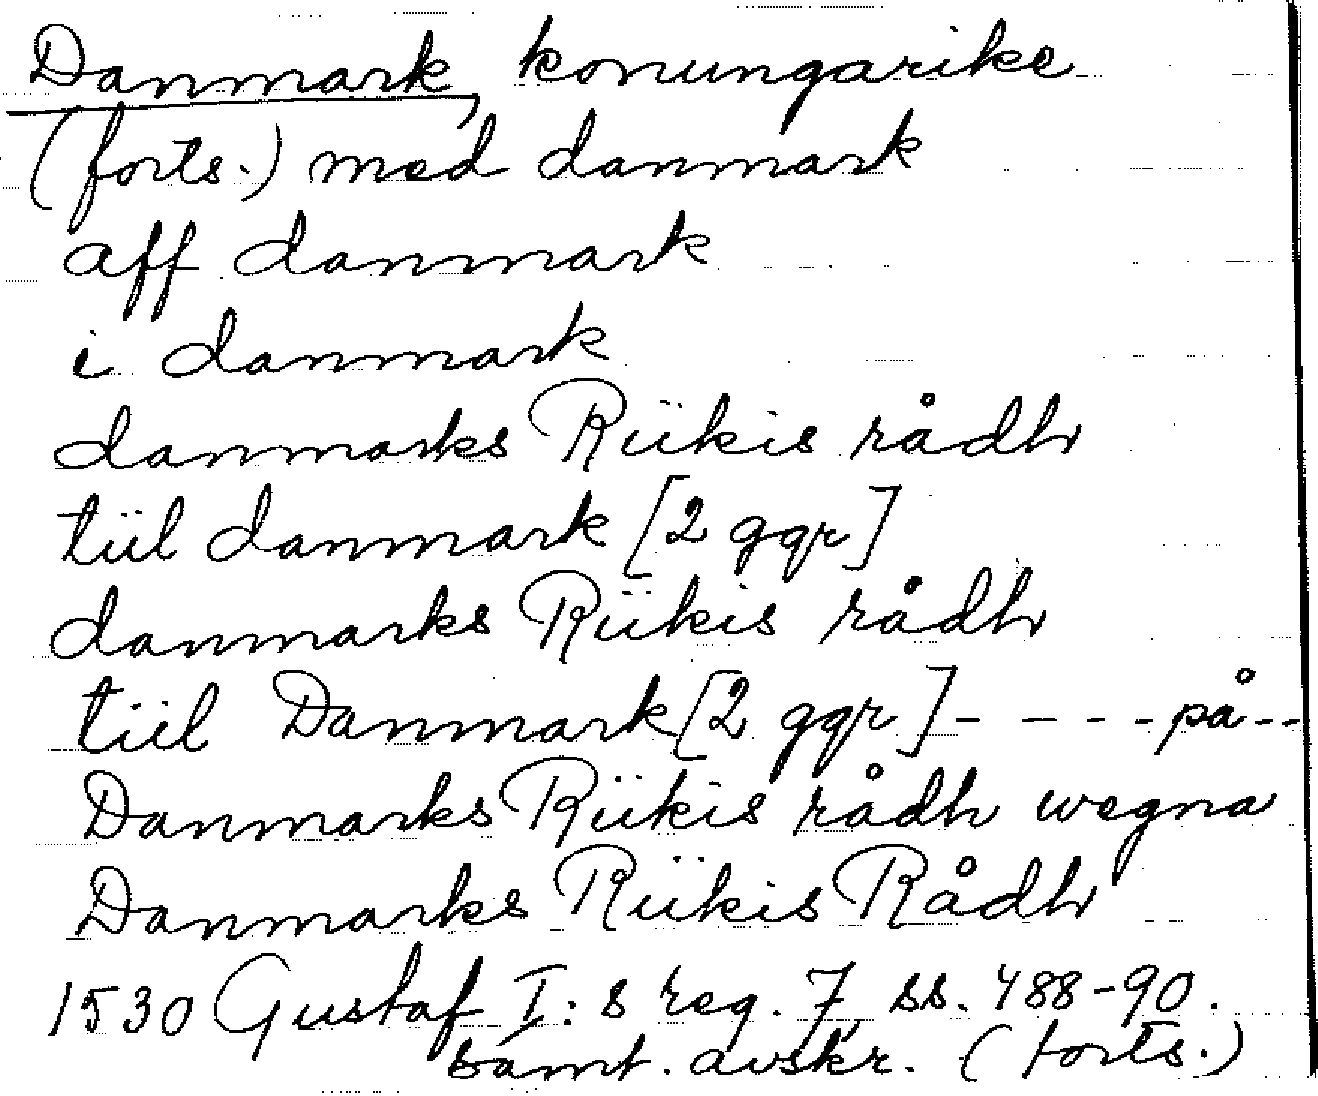 Danmark, konungarike
(forts.) med danmark
aff danmark
i danmark
danmarks Riikis rådh
tiil danmark [2 ggr]
danmarks Riikis rådh
tiil Danmark [2 ggr] - - - - på - -
Danmarks Riikis rådh wegna
Danmarks Riikis Rådh
1530 Gustaf I:s reg. 7, ss. 488-90.
samt. avskr. (forts.)